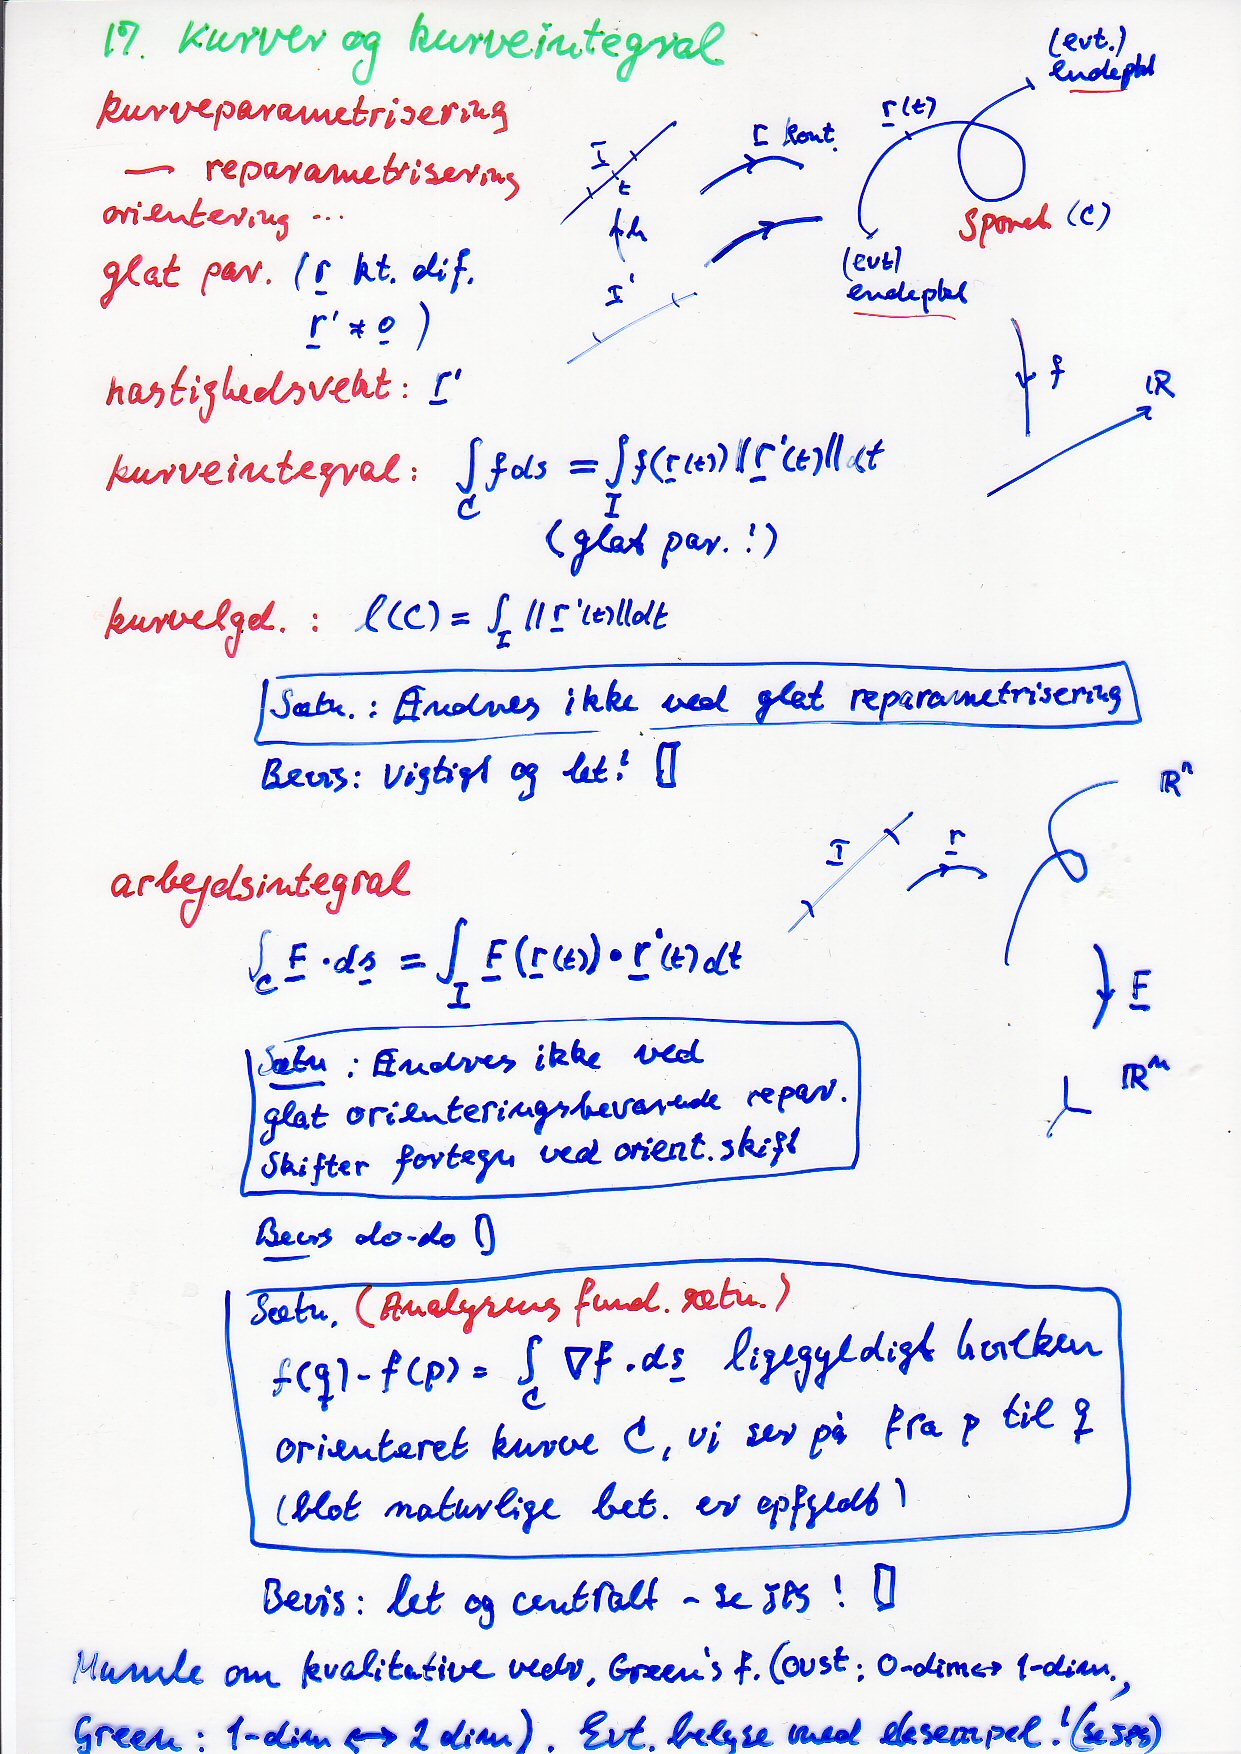 17. Kurver og kurveintegral
kurveparametrisering
— reparametrisering
orientering ...
glat par. (r kt. dif.
r' ≠ 0)
hastighedsvekt: r'
I
t
h
I'
r kont.
r(t)
(evt.)
endepkt
Sporet (C)
(evt)
endepkt
f
ℝ
kurveintegral: ∫_C f ds = ∫_I f(r(t)) ||r'(t)|| dt
(glat par. !)
kurvelgd. : l(C) = ∫_I ||r'(t)|| dt
Sætn. : Ændres ikke ved glat reparametrisering
Bevis: Vigtigt og let! ▯
arbejdsintegral
I
r
ℝⁿ
F
ℝⁿ
∫_C F · ds = ∫_I F(r(t)) • r'(t) dt
Sætn : Ændres ikke ved
glat orienteringsbevarende repar.
Skifter fortegn ved orient. skift
Bevis do-do ▯
Sætn. (Analysens fund. sætn.)
f(q) - f(p) = ∫_C ∇f · ds ligegyldigt hvilken
orienteret kurve C, vi ser på fra p til q
(blot naturlige bet. er opfyldt)
Bevis: let og centralt - se JPS ! ▯
Mumle om kvalitative vedr. Green's f. (ovst: 0-dim ↔ 1-dim.,
Green : 1-dim ↔ 2 dim). Evt. belyse med eksempel! (se JPS)